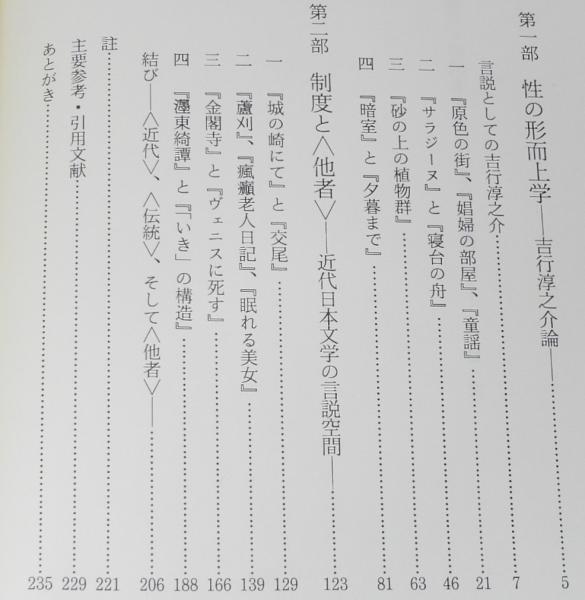 第一部 性の形而上学――吉行淳之介論――……5
言説としての吉行淳之介……7
一 『原色の街』、『娼婦の部屋』、『童謡』……21
二 『サラジーヌ』と『寝台の舟』……46
三 『砂の上の植物群』……63
四 『暗室』と『夕暮まで』……81
第二部 制度と〈他者〉――近代日本文学の言説空間――……123
一 『城の崎にて』と『交尾』……129
二 『蘆刈』、『瘋癲老人日記』、『眠れる美女』……139
三 『金閣寺』と『ヴェニスに死す』……166
四 『濹東綺譚』と『「いき」の構造』……188
結び――〈近代〉、〈伝統〉、そして〈他者〉――……206
註……221
主要参考・引用文献……229
あとがき……235